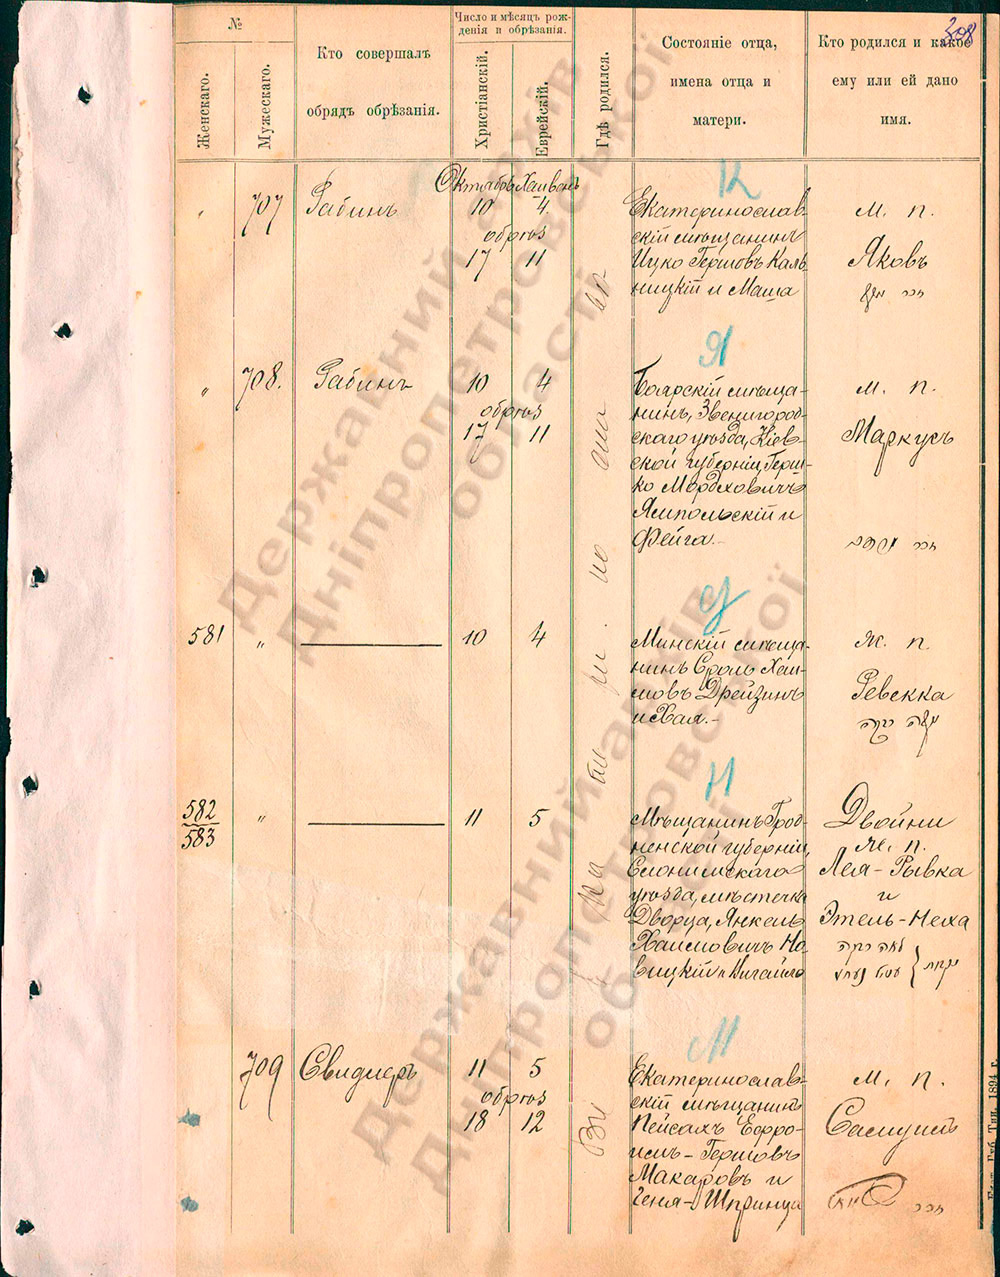 308
№
Женскаго.
Мужескаго.
Кто совершалъ
обрядъ обрѣзанія.
Число и мѣсяцъ рож-
денія и обрѣзанія.
Христіанскій.
Еврейскій.
Гдѣ родился.
Состояніе отца,
имена отца и
матери.
Кто родился и какое
ему или ей дано
имя.
Октябрь Хешванъ
К
„ 707 Рабинъ 10 4.
обрѣз
17 11
Екатеринослав-
скій мѣщанинъ
Ицко Гершовъ Каль-
ницкій и Маша
М. п.
Яковъ
Я
„ 708. Рабинъ 10 4
обрѣз
17 11
Боярскій мѣща-
нинъ, Звенигород-
скаго уѣзда, Кіев-
ской губерніи, Герш-
ко Мордховичъ
Ямпольскій и
Фейга.-
М. п.
Маркусъ
Д
581 „ 10 4
Минскій мѣща-
нинъ Сроль Хаи-
мовъ Дрейзинъ
и Хая.-
Ж. п.
Ревекка
Н
582
583
„ 11 5
Мѣщанинъ Грод-
ненской губерніи,
Слонимскаго
уѣзда, мѣстечка
Дворца, Янкель
Хаимовичъ Но-
вицкій и
Двойни
Ж. п.
Лея-Рывка
и
Этель-Неха
М
709 Свидлеръ 11 5
обрѣз
18 12
Екатеринослав-
скій мѣщанинъ
Пейсахъ Ефро-
имъ-Гершовъ
Макаровъ и
Геня-Шпринца
М. п.
Самуилъ
Державний архів
Дніпропетровської
області
Державний архів
Дніпропетровської
області